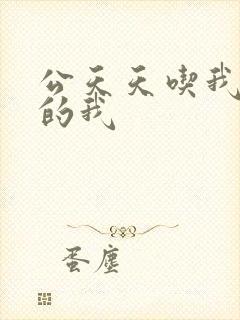 公天天喫我
的我
蛋塵